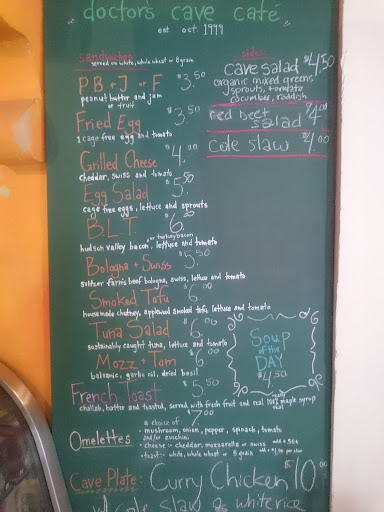 doctor's cave café
est oct. 1999
sandwiches
served on white, whole wheat or 8 grain
PB + J or F $3.50
peanut butter and jam
or fruit
Fried Egg $3.50
1 cage free egg and tomato
Grilled Cheese $4.00
cheddar, swiss and tomato
Egg Salad $5.50
cage free eggs, lettuce and sprouts
BLT $6.00
or turkey bacon
hudson valley bacon, lettuce and tomato
Bologna + Swiss $5.50
seltzer farms beef bologna, swiss, lettuce and tomato
Smoked Tofu $6.00
housemade chutney, applewood smoked tofu, lettuce and tomato
Tuna Salad $6.00
sustainably caught tuna, lettuce and tomato
Mozz + Tom $6.00
balsamic, garlic oil, dried basil
French Toast $5.50
challah, batter and toasted, served with fresh fruit and real 100% maple syrup
$7.00
a choice of:
Omelettes - mushroom, onion, pepper, spinach, tomato
and/or zucchini
- cheese - cheddar, mozzarella or swiss add .50¢
- toast - white, whole wheat or 8 grain
Cave Plate: Curry Chicken $10.00
w/ cole slaw & white rice
sides
cave salad $4.50
organic mixed greens,
sprouts, tomato
cucumber, radish
red beet salad $4.00
cole slaw $4.00
Soup
of the
DAY
$4.50